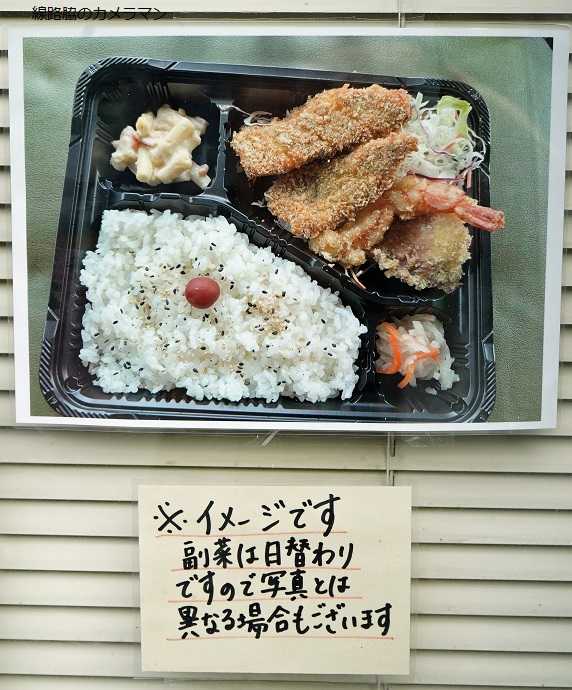 線路脇のカメラマン
※イメージです
副菜は日替わり
ですので写真とは
異なる場合もございます